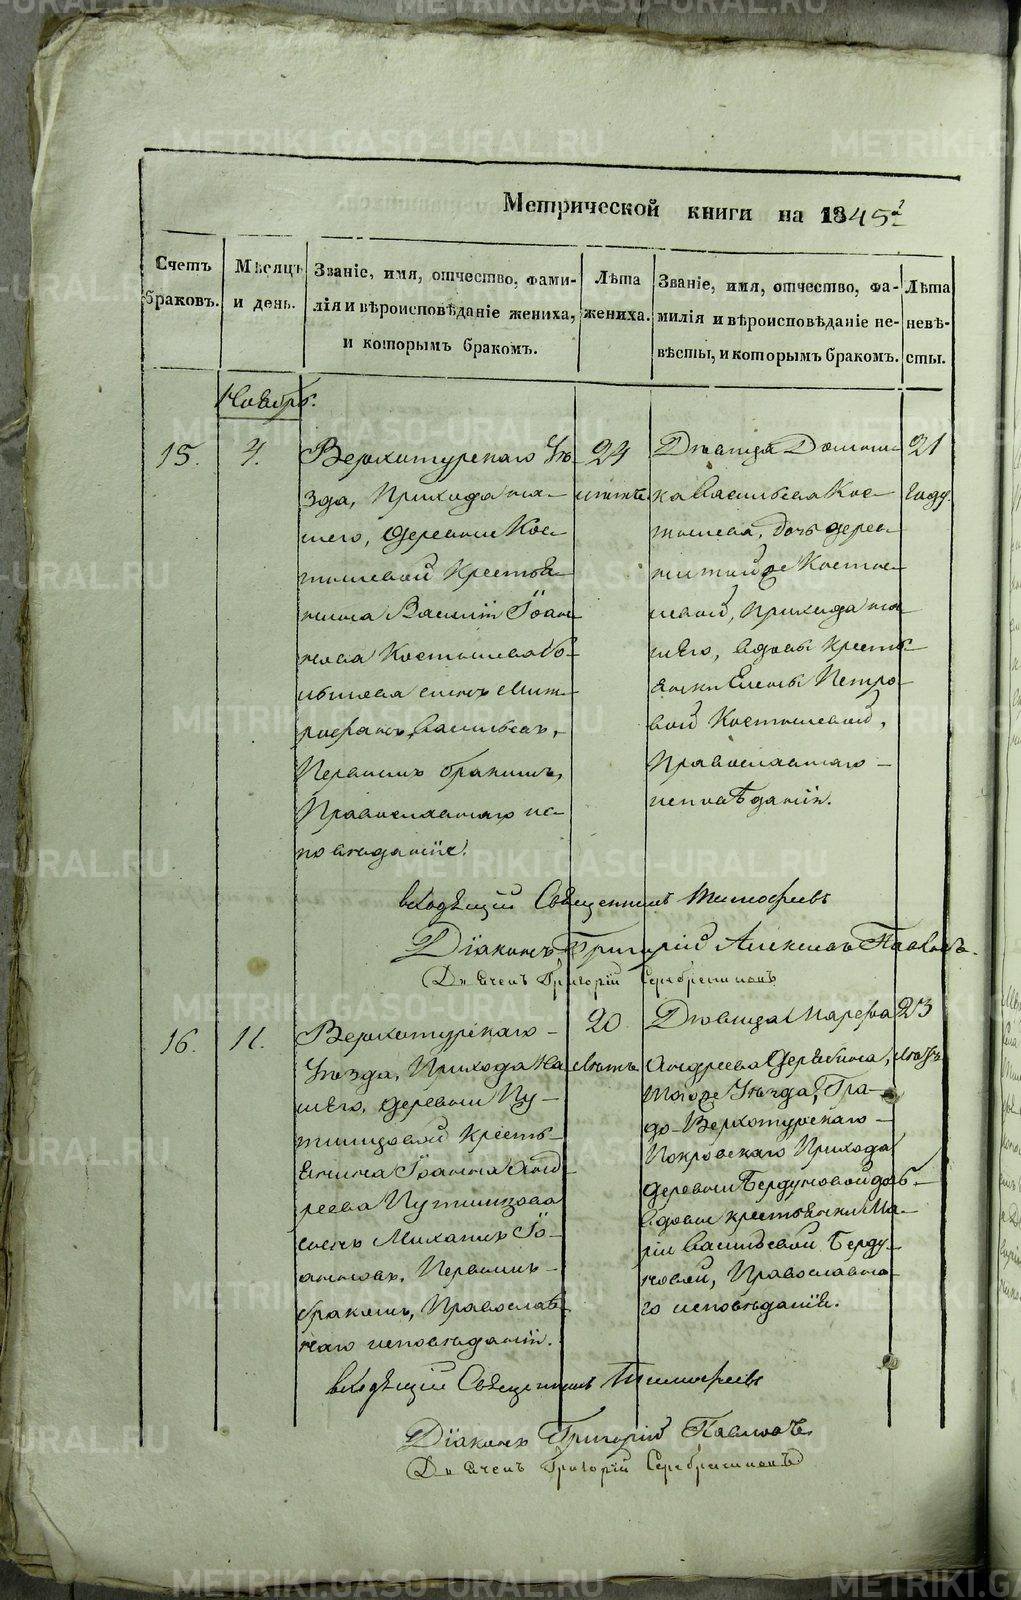 METRIKI.GASO-URAL.RU
Метрической книги на 1845 г.
Счетъ браковъ.
Мѣсяцъ и день.
Званіе, имя, отчество, фами-
лія и вѣроисповѣданіе жениха,
и которымъ бракомъ.
Лѣта
жениха.
Званіе, имя, отчество, фа-
милія и вѣроисповѣданіе не-
вѣсты, и которымъ бракомъ.
Лѣта
невѣ-
сты.
Ноябрь.
15.
4.
Верхотурскаго Уѣ-
зда, Прихода на-
шего, деревни Кос-
тылевой Кресть-
янина Василія Іоан-
нова Костылева
сынъ Мит-
рофанъ Васильевъ,
Первымъ бракомъ,
Православнаго ис-
повѣданія.
24
лѣтъ
Дѣвица Домни-
ка Васильева Кос-
тылева, дочь дерев-
ни той же Косты-
левой, Прихода на-
шего, вдовы кресть-
янки Елены Петро-
вой Костылевой,
Православнаго
исповѣданія.
21
году.
входящій Священникъ Тимофеевъ
Діаконъ Григорій Алексѣевъ Павловъ.
Дьячекъ Григорій Серебрениковъ
16.
11.
Верхотурскаго
Уѣзда, Прихода На-
шего, деревни Пу-
тимцовой Кресть-
янина Іоанна Анд-
реева Путимцова
сынъ Михаилъ Іо-
анновъ, Первымъ
бракомъ, Православ-
наго исповѣданія.
20
лѣтъ
Дѣвица Марѳа
Андреева Дерябина,
тогоже Уѣзда, Гра-
до-Верхотурскаго
Покровскаго Прихода
деревни Бердуновой дочь
вдовы крестьянки Ма-
ріи Васильевой Берду-
новой, Православна-
го исповѣданія.
23
лѣтъ
входящій Священникъ Тимофеевъ
Діаконъ Григорій Павловъ.
Дьячекъ Григорій Серебрениковъ